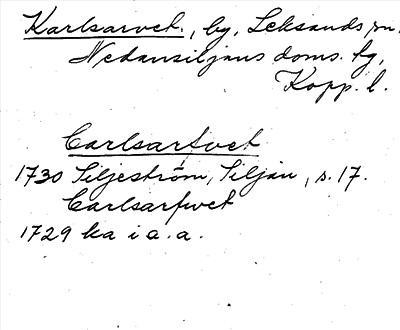 Karlsarvet., by, Leksands sn.
Nedansiljans doms. tg,
Kopp. l.
Carlsarfvet
1730 Siljeström, Siljan, s. 17.
Carlsarfwet
1729 ka i a. a.